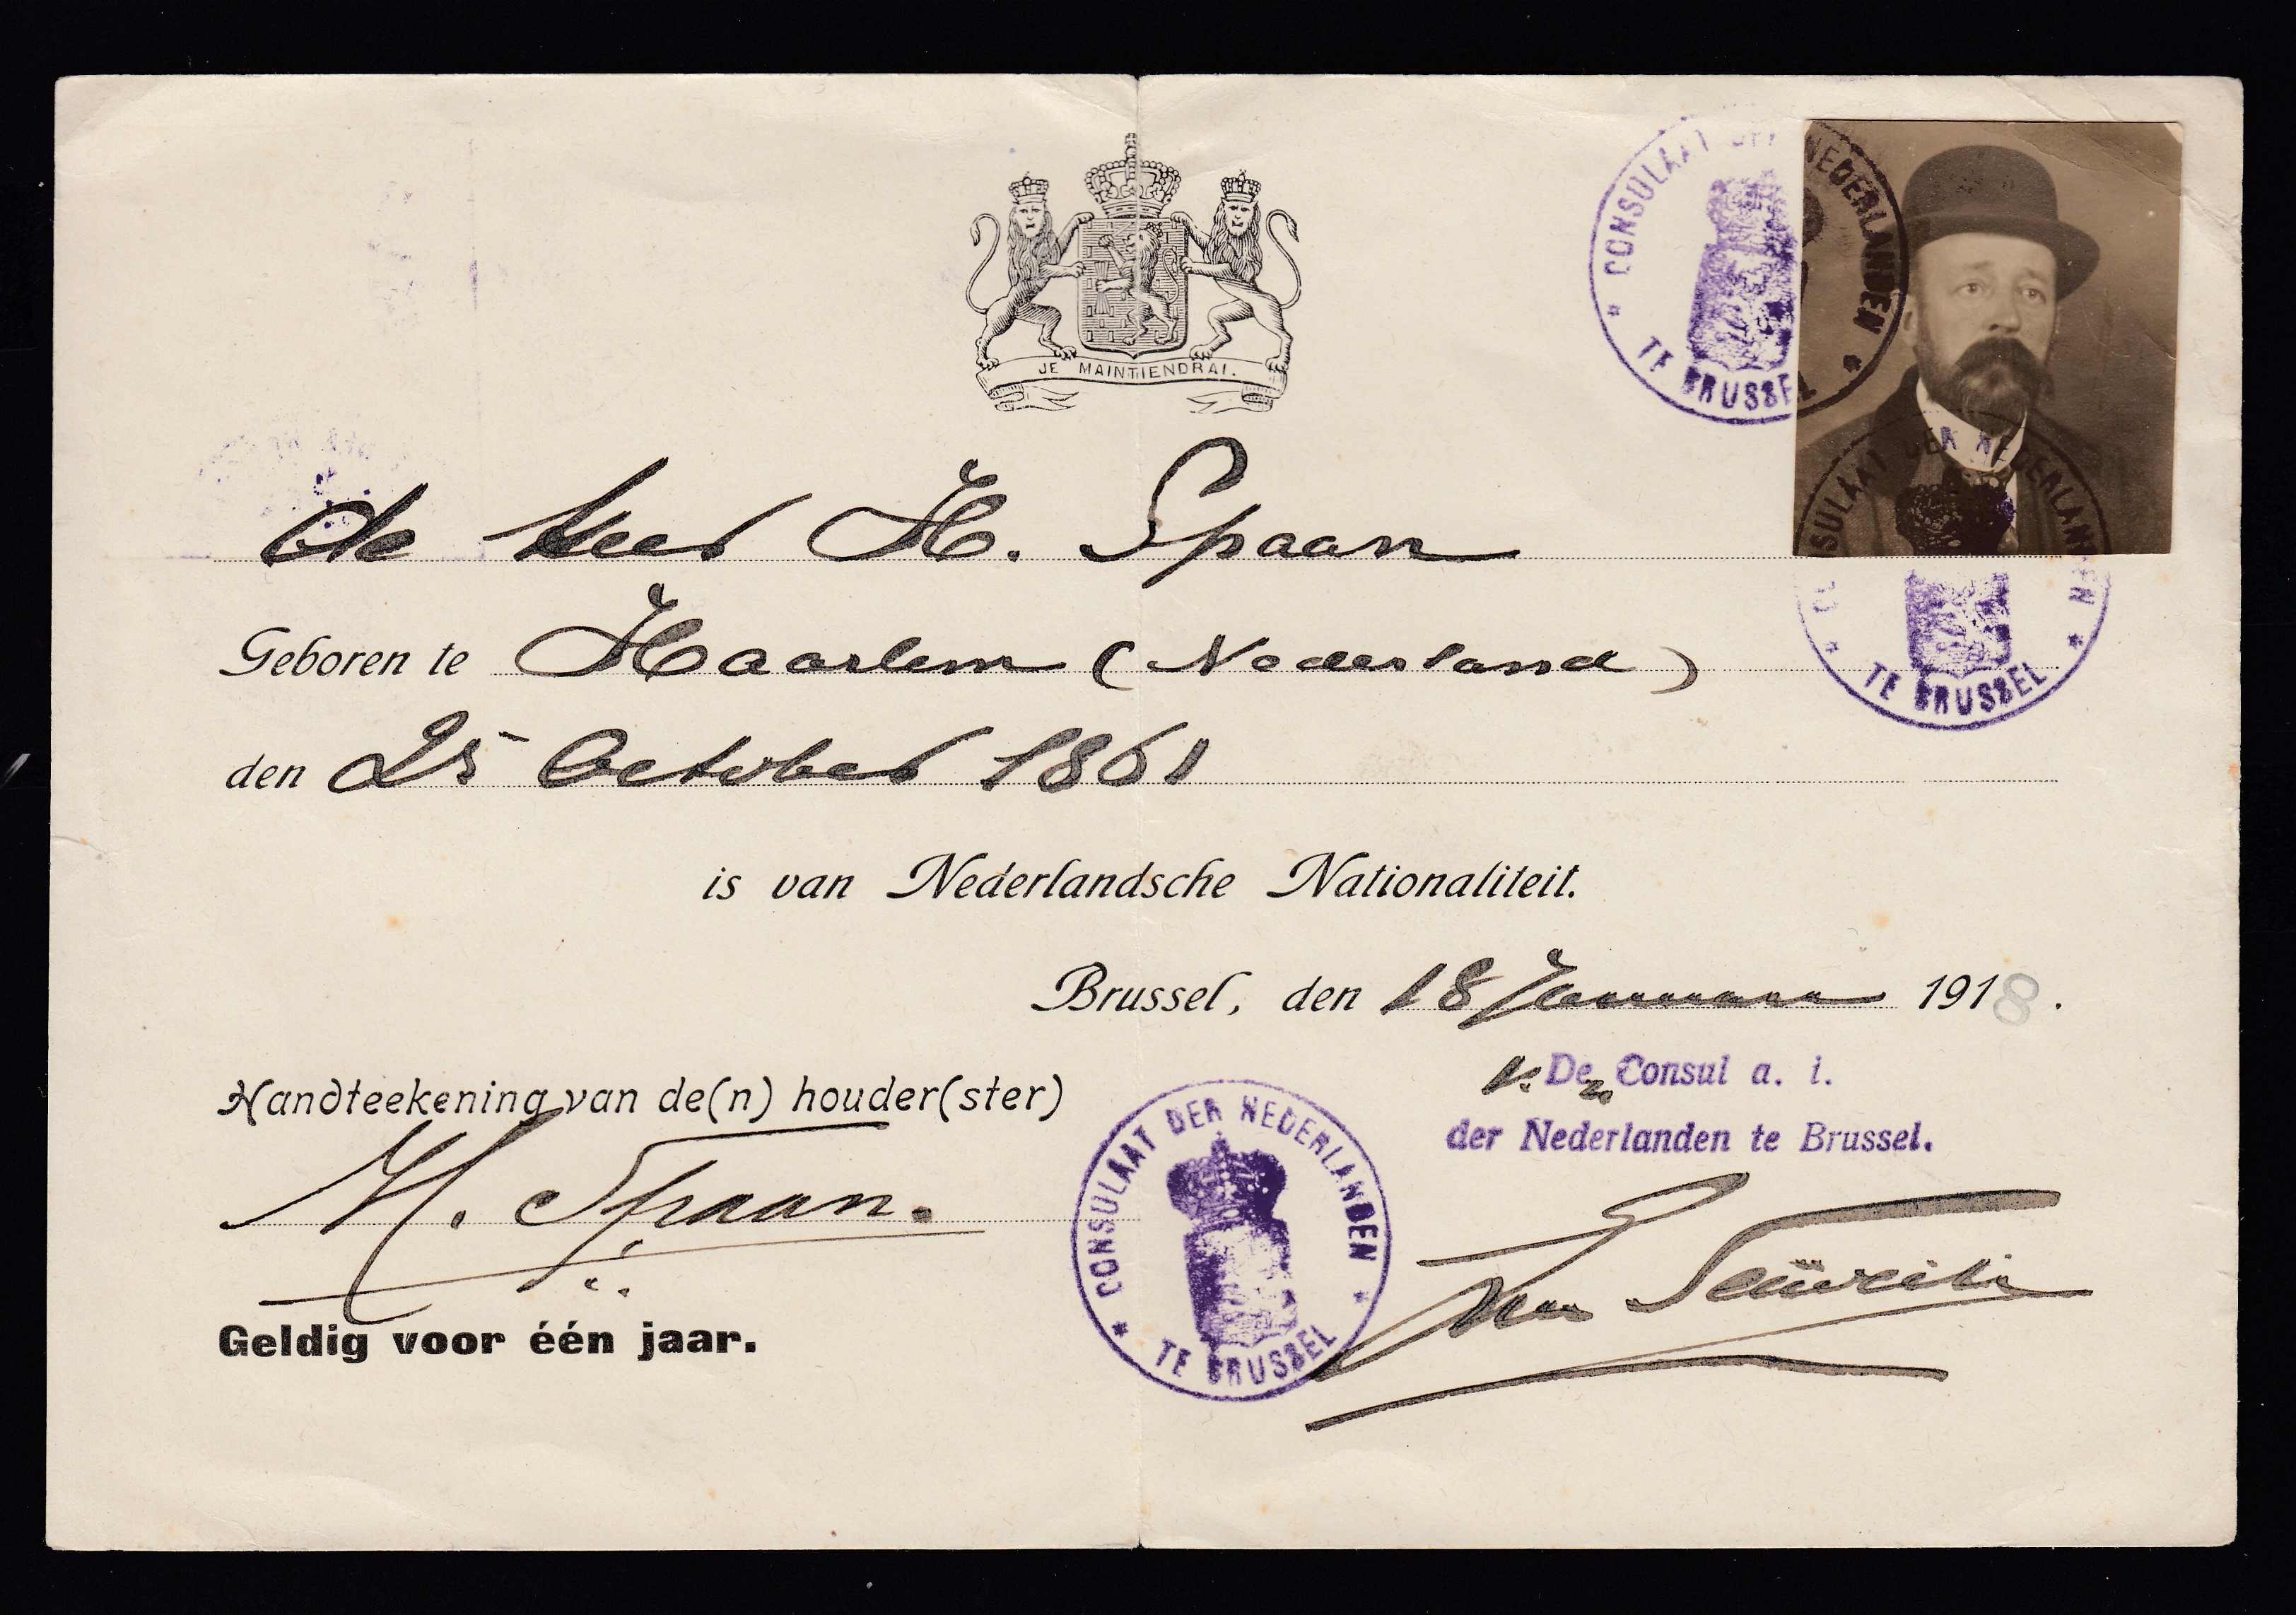 JE MAINTIENDRAI.
CONSULAAT DER NEDERLANDEN
TE BRUSSEL
De Heer H. Spaan
CONSULAAT DER NEDERLANDEN
TE BRUSSEL
Geboren te Haarlem (Nederland)
den 25 October 1861
is van Nederlandsche Nationaliteit.
Brussel, den 18 Januari 1918.
Handteekening van de(n) houder(ster)
v. De Consul a. i.
der Nederlanden te Brussel.
H. Spaan.
CONSULAAT DER NEDERLANDEN
TE BRUSSEL
Geldig voor één jaar.